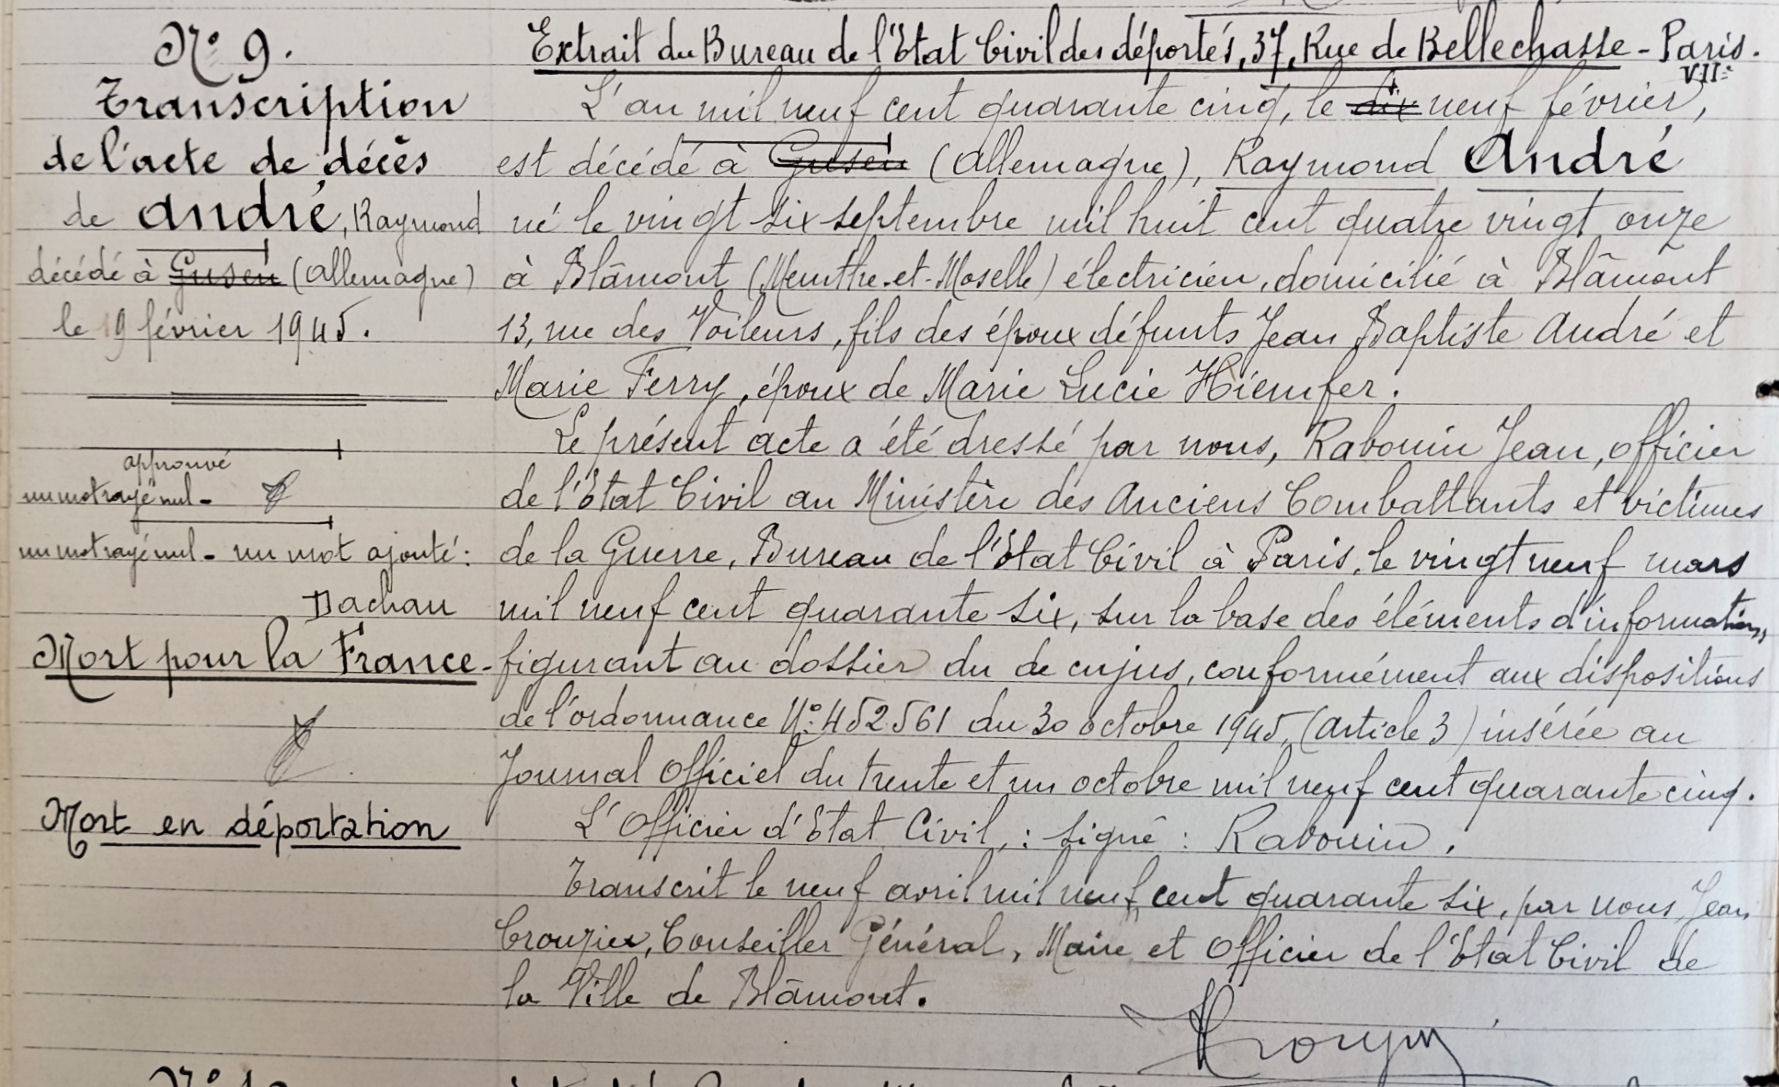 N° 9.
Transcription
de l'acte de décès
de André, Raymond
décédé à Gusen (Allemagne)
le 19 février 1945.
approuvé
un mot rayé nul -
un mot rayé nul - un mot ajouté :
Dachau
Mort pour la France -
Mort en déportation
Extrait du Bureau de l'Etat Civil des déportés, 37, Rue de Bellechasse - Paris.
VIIe
L'an mil neuf cent quarante cinq, le dix neuf février,
est décédé à Gusen (Allemagne), Raymond André
né le vingt six septembre mil huit cent quatre vingt onze
à Blâmont (Meurthe-et-Moselle) électricien, domicilié à Blâmont
13, rue des Voileurs, fils des époux défunts Jean Baptiste André et
Marie Ferry, époux de Marie Lucie Hiemfer.
Le présent acte a été dressé par nous, Rabouin Jean, officier
de l'Etat Civil au Ministère des Anciens Combattants et victimes
de la Guerre, Bureau de l'Etat Civil à Paris, le vingt neuf mars
mil neuf cent quarante six, sur la base des éléments d'informations
figurant au dossier du de cujus, conformément aux dispositions
de l'ordonnance N° 452561 du 30 octobre 1945, (article 3) insérée au
Journal Officiel du trente et un octobre mil neuf cent quarante cinq.
L'Officier d'Etat Civil, : signé : Rabouin.
Transcrit le neuf avril mil neuf cent quarante six, par nous, Jean
Crouzier, Conseiller Général, Maire et Officier de l'Etat Civil de
la Ville de Blâmont.